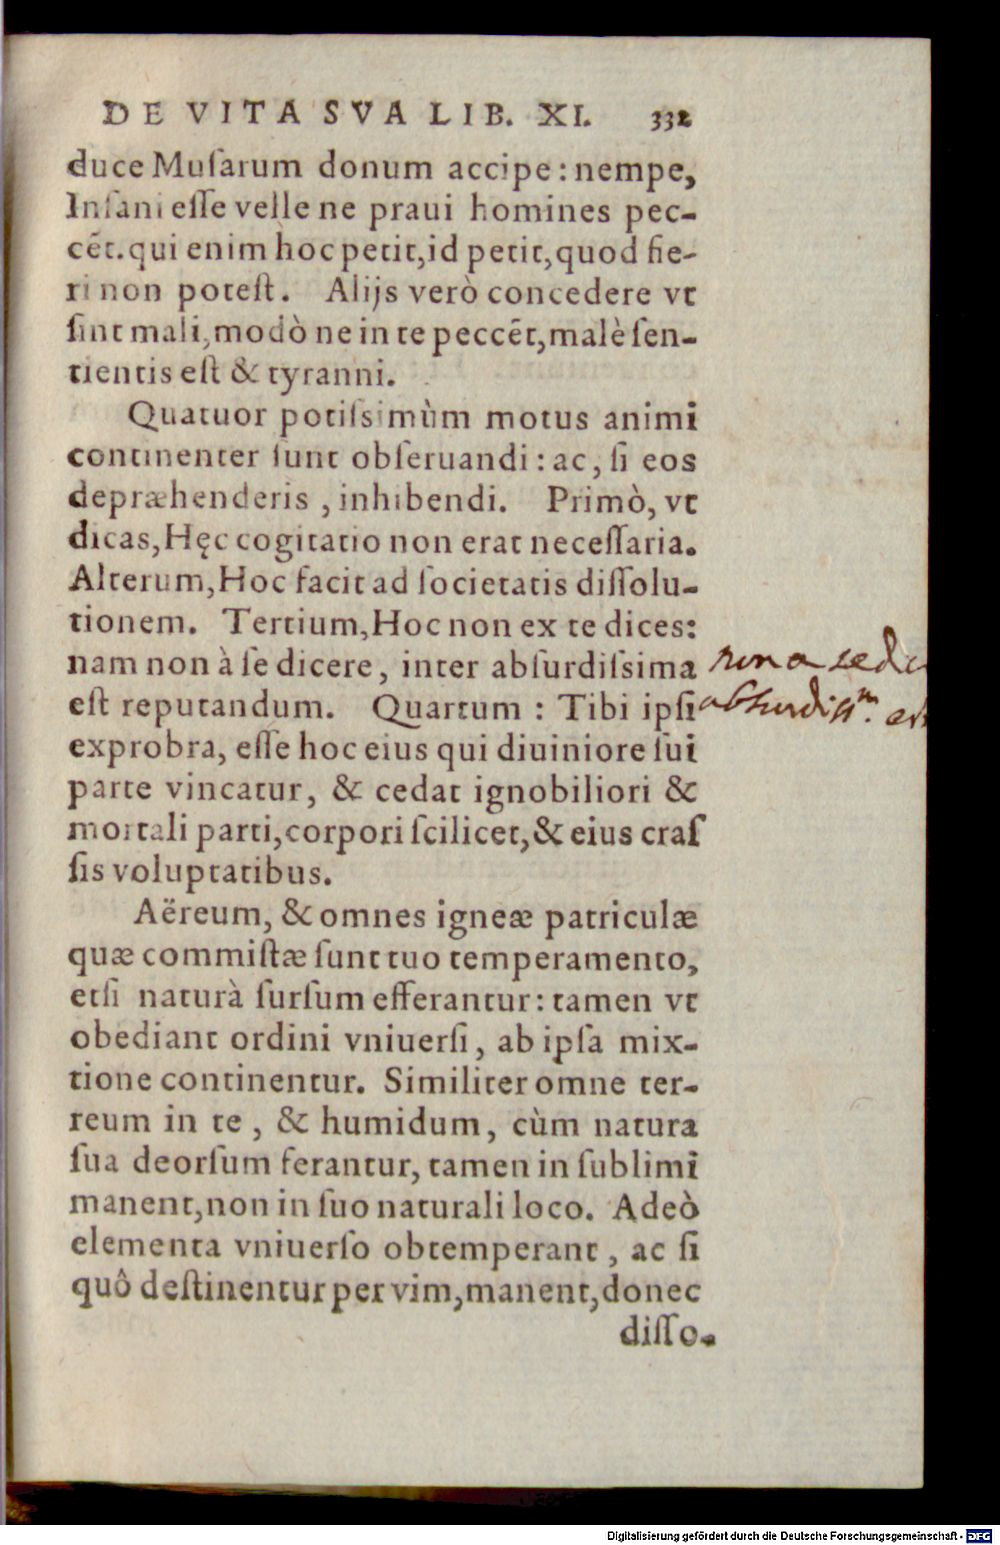 DE VITA SVA LIB. XI. 332
duce Muſarum donum accipe: nempe,
Inſani eſſe velle ne praui homines pec-
cēt. qui enim hoc petit, id petit, quod fie-
ri non poteſt. Alijs verò concedere vt
ſint mali, modò ne in te peccēt, malè ſen-
tientis eſt & tyranni.
Quatuor potiſsimùm motus animi
continenter ſunt obſeruandi: ac, ſi eos
depræhenderis, inhibendi. Primò, vt
dicas, Hęc cogitatio non erat neceſſaria.
Alterum, Hoc facit ad ſocietatis diſſolu-
tionem. Tertium, Hoc non ex te dices:
nam non à ſe dicere, inter abſurdiſsima
non a se dic
eſt reputandum. Quartum: Tibi ipſi
absurdissm.
exprobra, eſſe hoc eius qui diuiniore ſui
parte vincatur, & cedat ignobiliori &
mortali parti, corpori ſcilicet, & eius craſ
ſis voluptatibus.
Aëreum, & omnes igneæ patriculæ
quæ commiſtæ ſunt tuo temperamento,
etſi naturà ſurſum efferantur: tamen vt
obediant ordini vniuerſi, ab ipſa mix-
tione continentur. Similiter omne ter-
reum in te, & humidum, cùm natura
ſua deorſum ferantur, tamen in ſublimi
manent, non in ſuo naturali loco. Adeò
elementa vniuerſo obtemperant, ac ſi
quô deſtinentur per vim, manent, donec
diſſo-
Digitalisierung gefördert durch die Deutsche Forschungsgemeinschaft - DFG